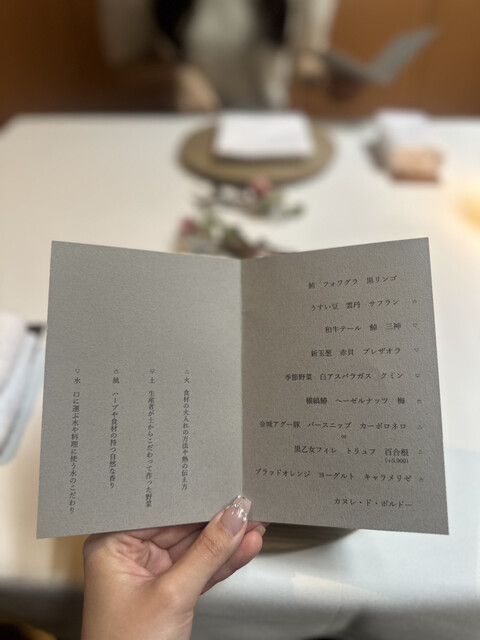 フォワグラ 黒リンゴ
うすい豆 雲丹 サフラン
和牛テール 三神 ▽
新玉葱 赤貝 ブレザオラ ▽
季節野菜 白アスパラガス クミン
ヘーゼルナッツ 梅
金城アグー豚 パースニップ カーボロネロ △
or
黒乙女フィレ トリュフ 百合根 △
(+5,000)
ブラッドオレンジ ヨーグルト キャラメリゼ
カヌレ・ド・ボルドー
△ 火 食材の火入れの方法や熱の伝え方
土 生産者が土からこだわって作った野菜
風 ハーブや食材の持つ自然な香り
▽ 水 口に運ぶ水や料理に使う水のこだわり